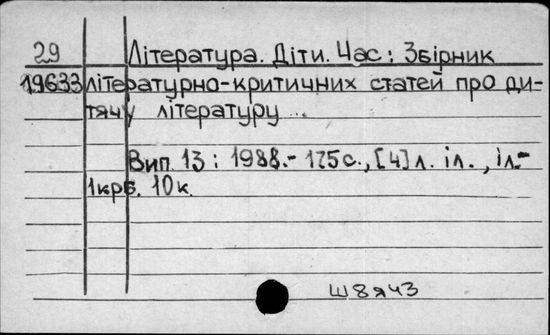 29 Література. Діти. Час: Збірник
19633 літературно-критичних статей про ди-
тячу літературу...
Вип. 13: 1988.- 175с., [4]л. іл., іл.-
1крб. 10к.
Ш8я43